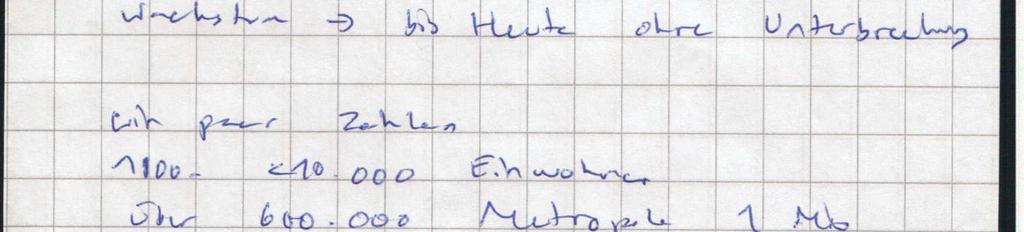 Wachstum → bis Heute ohne Unterbrechung
Ein paar Zahlen
1100- <10.000 Einwohner
über 600.000 Metropole 1 Mio